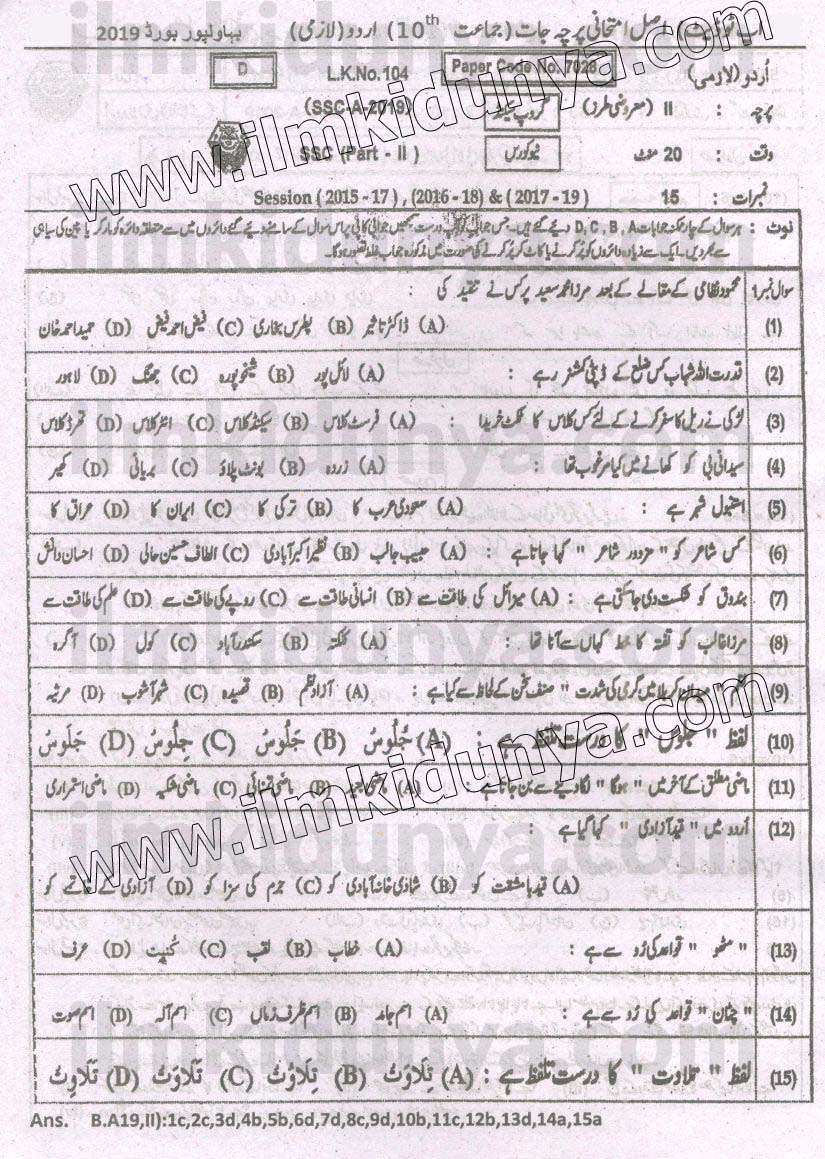 اپ ٹو ڈیٹ اصل امتحانی پرچہ جات (جماعت 10th) اردو (لازمی) بہاولپور بورڈ 2019
اُردو (لازمی) Paper Code No. 7028 L.K.No. 104 D
پرچہ : II (معروضی طرز) گروپ سیکنڈ (SSC-A-2019)
وقت : 20 منٹ نیو کورس SSC (Part - II )
نمبرات : 15 Session ( 2015 - 17 ) , (2016 - 18) & ( 2017 - 19 )
نوٹ : ہر سوال کے چار ممکنہ جوابات D, C , B , A دیئے گئے ہیں۔ جس جواب کو آپ درست سمجھیں جوابی کاپی پر اس سوال کے سامنے دیئے گئے دائروں میں سے متعلقہ دائرہ کو مارکر یا پین کی سیاہی
سے بھر دیں۔ ایک سے زیادہ دائروں کو پُر کرنے یا کاٹ کر پُر کرنے کی صورت میں مذکورہ جواب غلط تصور ہو گا۔
سوال نمبر1 محمود نظامی کے مقالے کے بعد مرزا محمد سعید پر کس نے تنقید کی
(1) (A) ڈاکٹر تاثیر (B) پطرس بخاری (C) فیض احمد فیض (D) حمید احمد خان
(2) قدرت اللہ شہاب کس ضلع کے ڈپٹی کمشنر رہے : (A) لائل پور (B) شیخوپورہ (C) جھنگ (D) لاہور
(3) لڑکی نے ریل کا سفر کرنے کے لئے کس کلاس کا ٹکٹ خریدا : (A) فرسٹ کلاس (B) سیکنڈ کلاس (C) انٹر کلاس (D) تھرڈ کلاس
(4) سیدانی بی کو کھانے میں کیا مرغوب تھا : (A) زردہ (B) بونٹ پلاؤ (C) بریانی (D) کھیر
(5) استنبول شہر ہے : (A) سعودی عرب کا (B) ترکی کا (C) ایران کا (D) عراق کا
(6) کس شاعر کو " مزدور شاعر " کہا جاتا ہے : (A) حبیب جالب (B) نظیر اکبر آبادی (C) الطاف حسین حالی (D) احسان دانش
(7) بندوق کو شکست دی جا سکتی ہے : (A) میزائل کی طاقت سے (B) انسانی طاقت سے (C) روپے کی طاقت سے (D) علم کی طاقت سے
(8) مرزا غالب کو تفتہ کا خط کہاں سے آتا تھا : (A) کلکتہ (B) سکندر آباد (C) کول (D) آگرہ
(9) نظم " میدان کربلا میں گرمی کی شدت " صنف سخن کے لحاظ سے کیا ہے : (A) آزاد نظم (B) قصیدہ (C) شہر آشوب (D) مرثیہ
(10) لفظ " جلوس " کا درست تلفظ ہے : (A) جُلُوسْ (B) جَلُوسْ (C) جِلُوسْ (D) جَلَوسْ
(11) ماضی مطلق کے آخر میں " ہوگا " لگا دینے سے بن جاتا ہے : (A) ماضی بعید (B) ماضی تمنائی (C) ماضی شکیہ (D) ماضی استمراری
(12) اُردو میں " قید آزادی " کہا گیا ہے :
(A) قید با مشقت کو (B) شادی خانہ آبادی کو (C) جرم کی سزا کو (D) آزادی کے خاتمے کو
(13) " مٹھو " قواعد کی رُو سے ہے : (A) خطاب (B) لقب (C) کُنیت (D) عرف
(14) " چٹان " قواعد کی رُو سے ہے : (A) اسم جامد (B) اسم ظرف زماں (C) اسم آلہ (D) اسم صوت
(15) لفظ " تلاوت " کا درست تلفظ ہے : (A) تِلَاوَتْ (B) تِلَاوُتْ (C) تَلَاوَتْ (D) تَلَاوِتْ
Ans. B.A19,II):1c,2c,3d,4b,5b,6d,7d,8c,9d,10b,11c,12b,13d,14a,15a
www.ilmkidunya.com
www.ilmkidunya.com